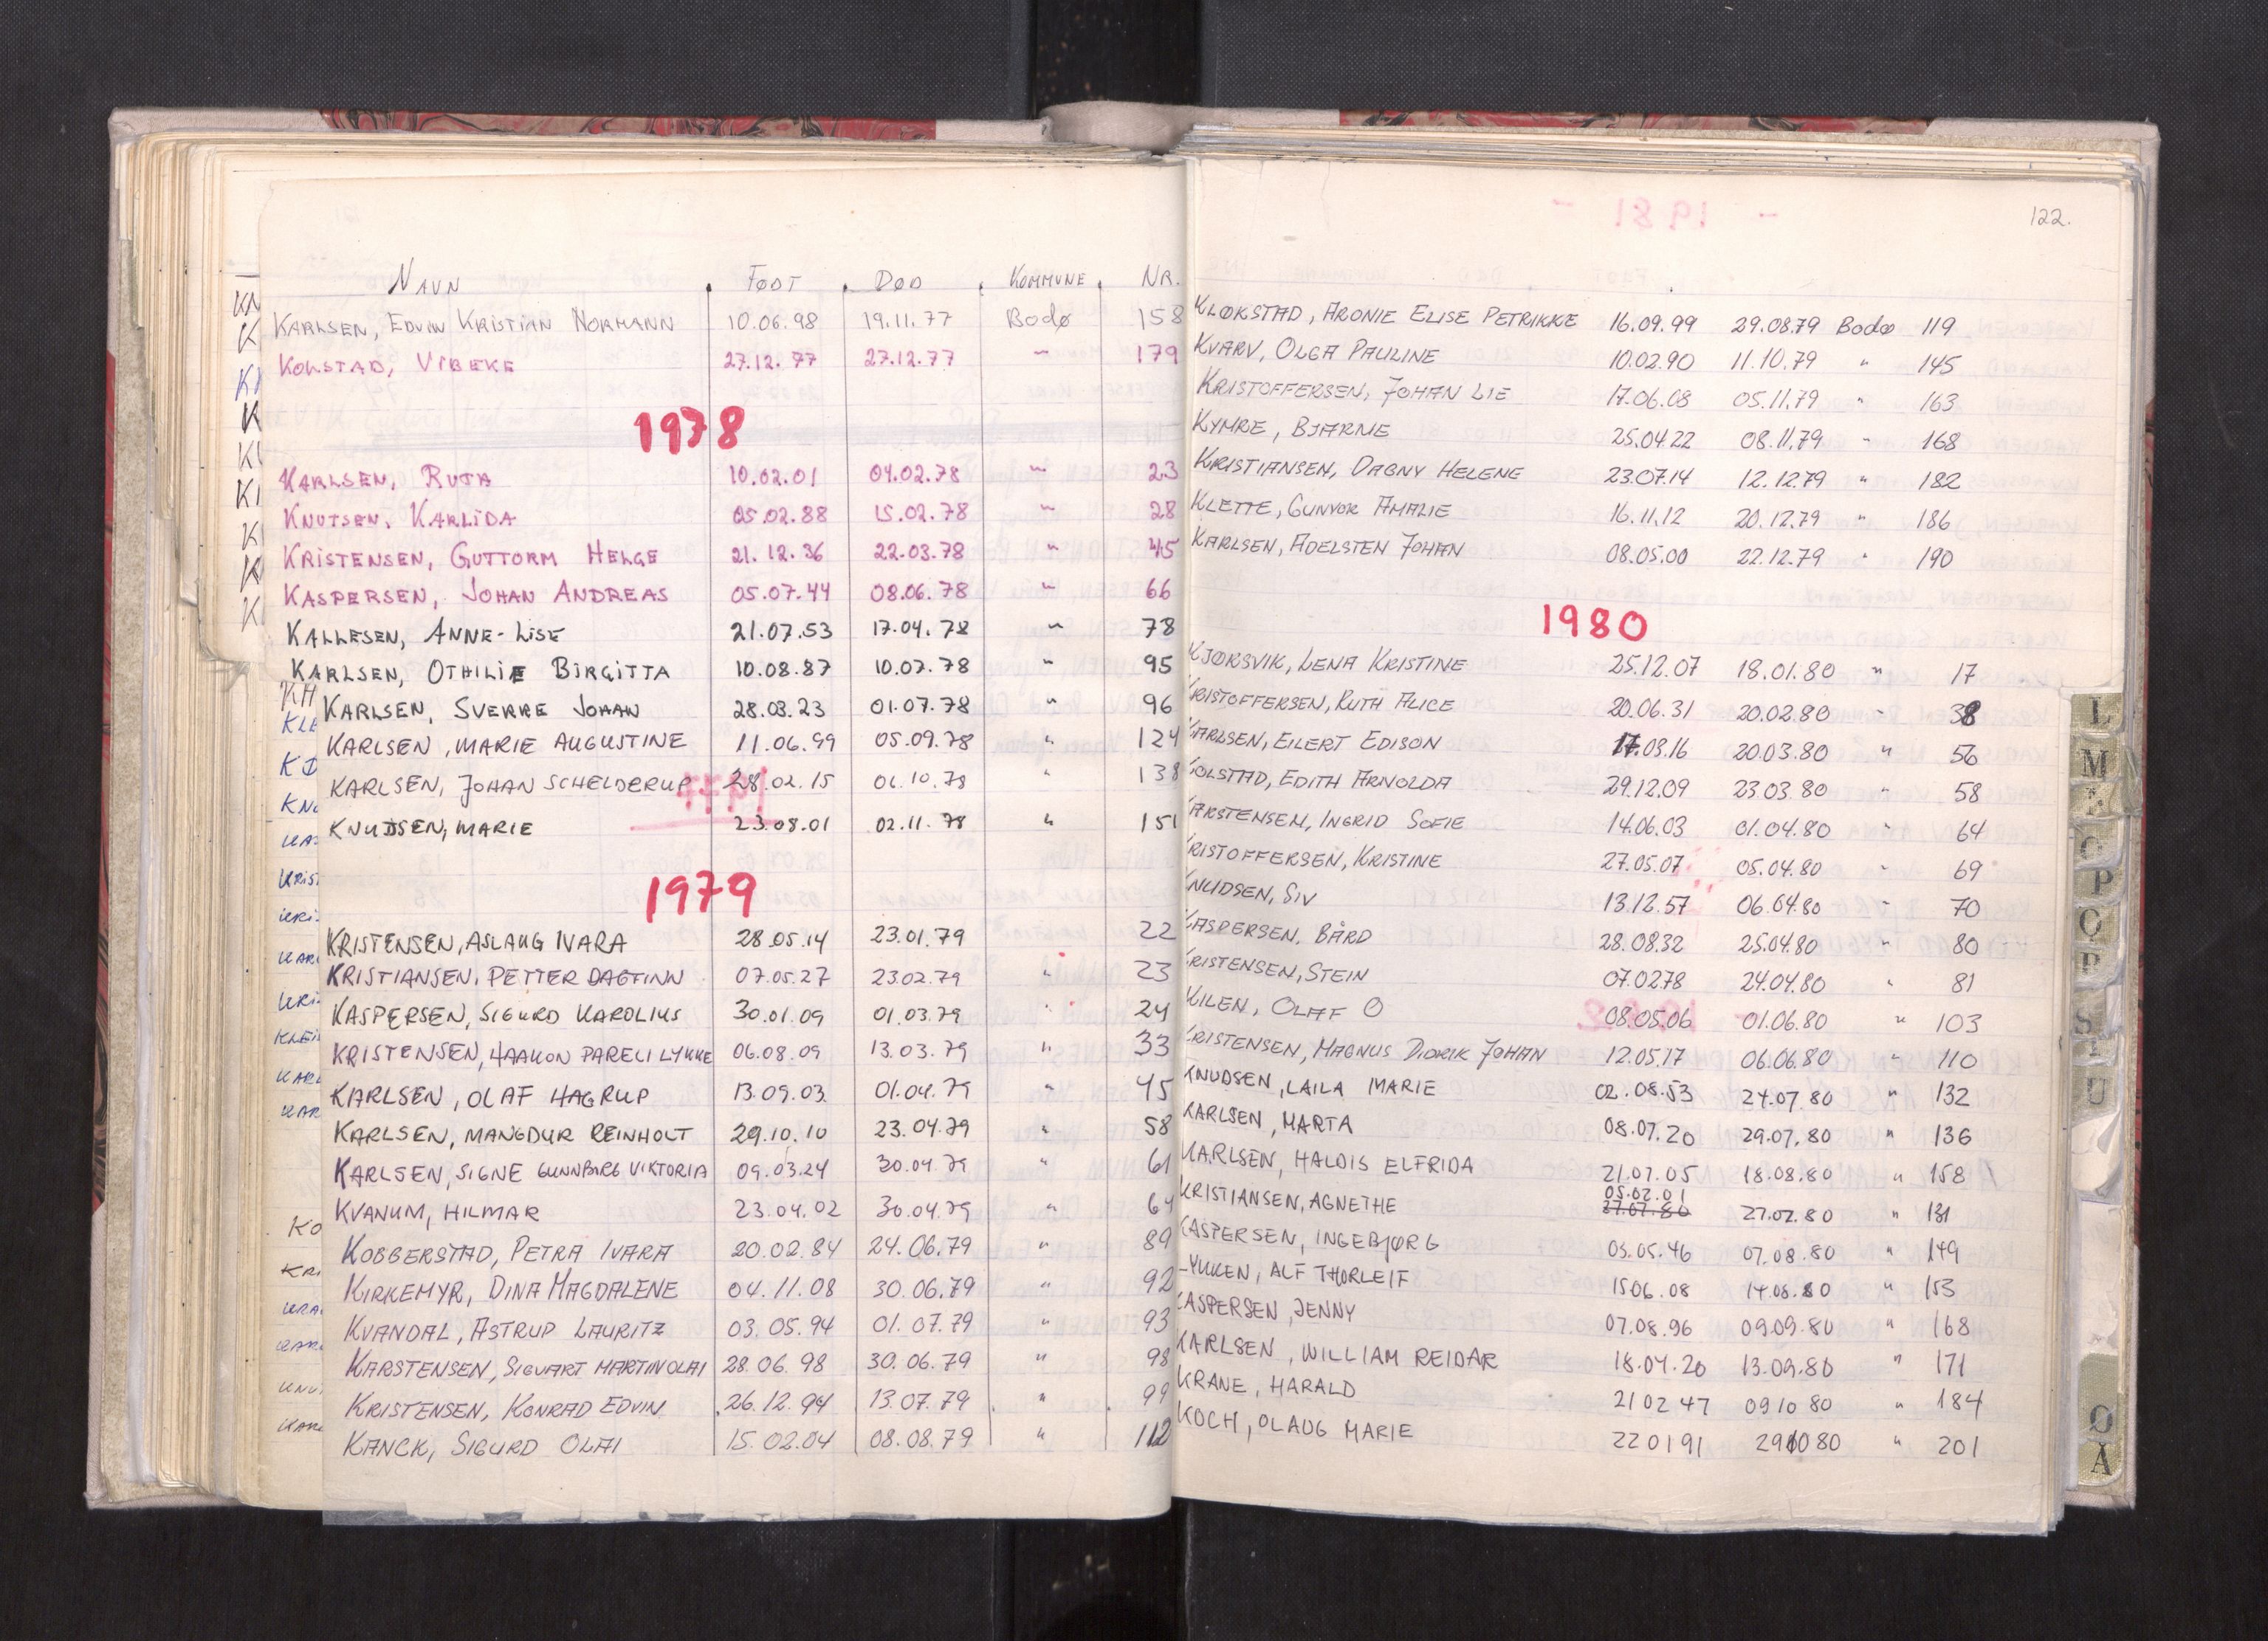 NAVN FØDT DØD KOMMUNE NR.
KARLSEN, EDVIN KRISTIAN NORMANN 10.06.98 19.11.77 Bodø 158
KOLSTAD, VIBEKE 27.12.77 27.12.77 " 179
1978
KARLSEN, RUTH 10.02.01 04.02.78 " 23
KNUTSEN, KARLIDA 05.02.88 15.02.78 " 28
KRISTENSEN, GUTTORM HELGE 21.12.36 22.03.78 " 45
KASPERSEN, JOHAN ANDREAS 05.07.44 08.06.78 " 66
KALLESEN, ANNE-LISE 21.07.53 17.04.78 " 78
KARLSEN, OTHILIE BIRGITTA 10.08.87 10.07.78 " 95
KARLSEN, SVERRE JOHAN 28.03.23 01.07.78 " 96
KARLSEN, MARIE AUGUSTINE 11.06.99 05.09.78 " 124
KARLSEN, JOHAN SCHELDERUP 28.02.15 06.10.78 " 138
KNUDSEN, MARIE 23.08.01 02.11.78 " 151
1979
KRISTENSEN, ASLAUG IVARA 28.05.14 23.01.79 22
KRISTIANSEN, PETTER DAGFINN 07.05.27 23.02.79 " 23
KASPERSEN, SIGURD KAROLIUS 30.01.09 01.03.79 " 24
KRISTENSEN, HAAKON PARELI LYKKE 06.08.09 13.03.79 " 33
KARLSEN, OLAF HAGRUP 13.09.03 01.04.79 " 45
KARLSEN, MANGDUR REINHOLT 29.10.10 23.04.79 " 58
KARLSEN, SIGNE GUNNBORG VIKTORIA 09.03.24 30.04.79 " 61
KVANUM, HILMAR 23.04.02 30.04.79 " 64
KOBBERSTAD, PETRA IVARA 20.02.84 24.06.79 " 89
KIRKEMYR, DINA MAGDALENE 04.11.08 30.06.79 " 92
KVANDAL, ASTRUP LAURITZ 03.05.94 01.07.79 " 93
KARSTENSEN, SIGVART MARTIN OLAI 28.06.98 30.06.79 " 98
KRISTENSEN, KONRAD EDVIN 26.12.94 13.07.79 " 99
KANCK, SIGURD OLAI 15.02.04 08.08.79 " 112
122.
KLØKSTAD, ARONIE ELISE PETRIKKE 16.09.99 29.08.79 Bodø 119
KVARV, OLGA PAULINE 10.02.90 11.10.79 " 145
KRISTOFFERSEN, JOHAN LIE 17.06.08 05.11.79 " 163
KYMRE, BJARNE 25.04.22 08.11.79 " 168
KRISTIANSEN, DAGNY HELENE 23.07.14 12.12.79 " 182
KLETTE, GUNVOR AMALIE 16.11.12 20.12.79 " 186
KARLSEN, ADELSTEN JOHAN 08.05.00 22.12.79 " 190
1980
KJØRSVIK, LENA KRISTINE 25.12.07 18.01.80 " 17
KRISTOFFERSEN, RUTH ALICE 20.06.31 20.02.80 " 38
KARLSEN, EILERT EDISON 17.03.16 20.03.80 " 56
KOLSTAD, EDITH ARNOLDA 29.12.09 23.03.80 " 58
KARSTENSEN, INGRID SOFIE 14.06.03 01.04.80 " 64
KRISTOFFERSEN, KRISTINE 27.05.07 05.04.80 " 69
KNUDSEN, SIV 13.12.57 06.04.80 " 70
KASPERSEN, BÅRD 28.08.32 25.04.80 " 80
KRISTENSEN, STEIN 07.02.78 24.04.80 " 81
KILEN, OLAF O 08.05.06 01.06.80 " 103
KRISTENSEN, MAGNUS DIDRIK JOHAN 12.05.17 06.06.80 " 110
KNUDSEN, LAILA MARIE 02.08.53 24.07.80 " 132
KARLSEN, MARTA 08.07.20 29.07.80 " 136
KARLSEN, HALDIS ELFRIDA 21.07.05 18.08.80 " 158
05.02.01
KRISTIANSEN, AGNETHE 27.07.80 27.07.80 " 131
KASPERSEN, INGEBJØRG 03.05.46 07.08.80 " 149
LYKKEN, ALF THORLEIF 15.06.08 14.08.80 " 153
KASPERSEN, JENNY 07.08.96 09.09.80 " 168
KARLSEN, WILLIAM REIDAR 18.04.20 13.09.80 " 171
KRANE, HARALD 21 02 47 09 10 80 " 184
KOCH, OLAUG MARIE 22 01 91 29 10 80 " 201
L
M
N
O
P
Q
R
S
T
U
Ø
Å